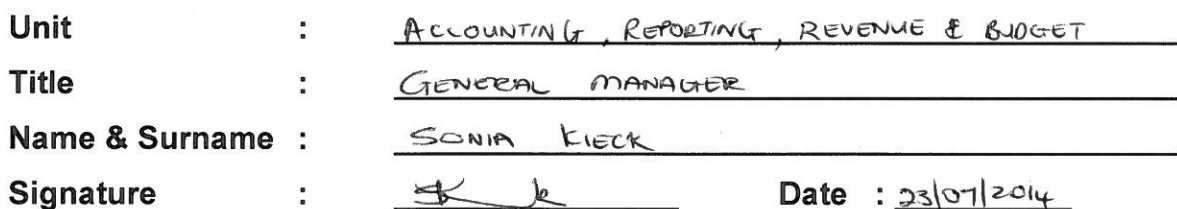 Unit : ACCOUNTING, REPORTING, REVENUE & BUDGET
Title : GENERAL MANAGER
Name & Surname : SONIA KIECK
Signature : Date : 23/07/2014